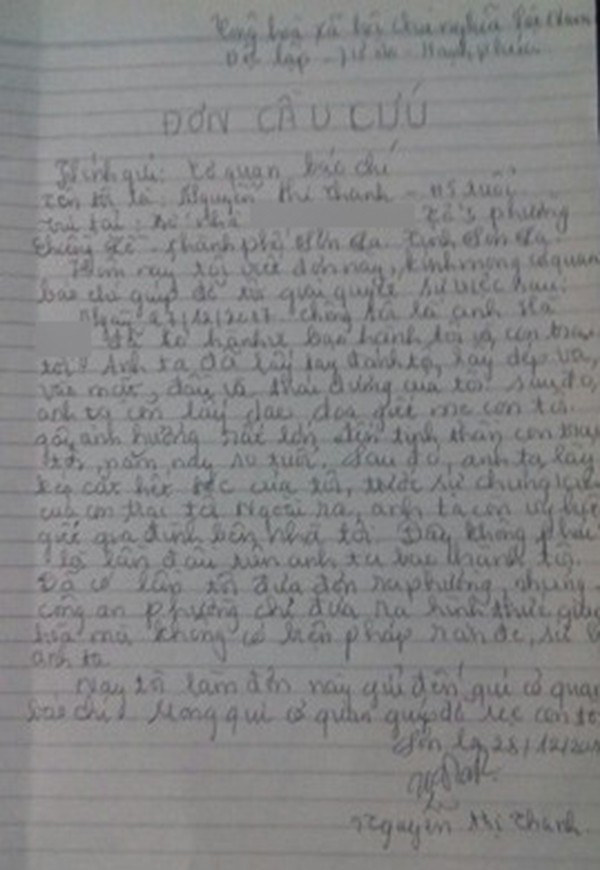 Cộng hoà xã hội chủ nghĩa Việt Nam
Độc lập - Tự do - Hạnh phúc
ĐƠN CẦU CỨU
Kính gửi: Cơ quan báo chí
Tên tôi là: Nguyễn Thị Thanh - tuổi
Trú tại: Số nhà tổ 5 phường
Chiềng Lề - thành phố Sơn La tỉnh Sơn La.
Hôm nay tôi viết đơn này, kính mong cơ quan
báo chí giúp đỡ tôi giải quyết sự việc sau:
Ngày 27/12/2017 chồng tôi là anh Hà
đã có hành vi bạo hành tôi và con trai
tôi. Anh ta đã lấy tay đánh tôi, lấy dép vả
vào mặt, đầu và thái dương của tôi. Sau đó,
anh ta còn lấy dao dọa giết mẹ con tôi.
gây ảnh hưởng rất lớn đến tinh thần con trai
tôi, năm nay tuổi. Sau đó, anh ta lấy
kéo cắt hết tóc của tôi, trước sự chứng kiến
của con trai tôi. Ngoài ra, anh ta còn
giết gia đình bên nhà tôi. Đây không phải
là lần đầu tiên anh ta bạo hành tôi.
Đã có lần tôi đưa đơn ra phường, nhưng
công an phường chỉ đưa ra hình thức
hoà mà không có biện pháp răn đe, xử lý
anh ta.
Nay tôi làm đơn này gửi đến quí cơ quan
báo chí. Mong quí cơ quan giúp đỡ mẹ con tôi
Sơn la, 28/12/
Nguyễn Thị Thanh